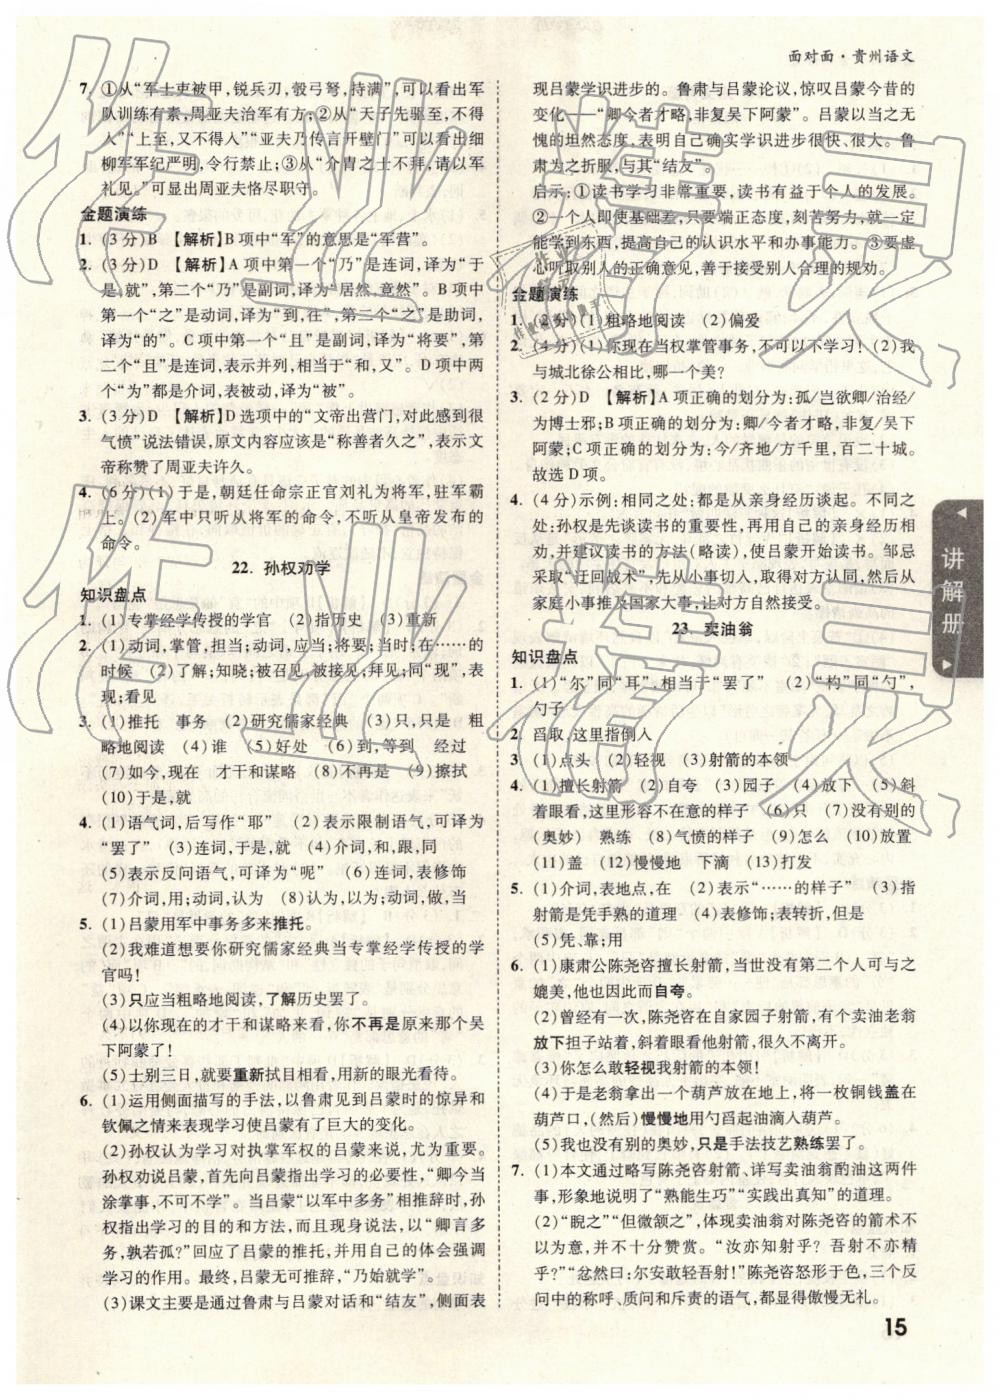 面对面·贵州语文
7. ①从“军士吏被甲，锐兵刃，彀弓弩，持满”，可以看出军
队训练有素，周亚夫治军有方；②从“天子先驱至，不得
入”“上至，又不得入”“亚夫乃传言开壁门”可以看出细
柳军军纪严明，令行禁止；③从“介胄之士不拜，请以军
礼见。”可显出周亚夫恪尽职守。
金题演练
1. (3分)B 【解析】B项中“军”的意思是“军营”。
2. (3分)D 【解析】A项中第一个“乃”是连词，译为“于
是，就”，第二个“乃”是副词，译为“居然，竟然”。B项中
第一个“之”是动词，译为“到，往”，第二个“之”是助词，
译为“的”。C项中第一个“且”是副词，译为“将要”，第
二个“且”是连词，表示并列，相当于“和，又”。D项中两
个“为”都是介词，表被动，译为“被”。
3. (3分)D 【解析】D选项中的“文帝出营门，对此感到很
气愤”说法错误，原文内容应该是“称善者久之”，表示文
帝称赞了周亚夫许久。
4. (6分)(1)于是，朝廷任命宗正官刘礼为将军，驻军霸
上。(2)军中只听从将军的命令，不听从皇帝发布的
命令。
22. 孙权劝学
知识盘点
1. (1)专掌经学传授的学官 (2)指历史 (3)重新
2. (1)动词，掌管，担当；动词，应当；将要；当……的
时候 (2)了解；知晓；被召见，被接见；拜见；同“现”，表
现；看见
3. (1)推托 事务 (2)研究儒家经典 (3)只，只是 粗
略地阅读 (4)谁 (5)好处 (6)到，等到 经过
(7)如今，现在 才干和谋略 (8)不再是 (9)擦拭
(10)于是，就
4. (1)语气词，后写作“耶” (2)表示限制语气，可译为
“罢了” (3)连词，于是，就 (4)介词，和，跟，同
(5)表示反问语气，可译为“呢” (6)连词，表修饰
(7)介词，用；动词，认为 (8)认为，以为；动词，做，当
5. (1)吕蒙用军中事务多来推托。
(2)我难道想要你研究儒家经典当专掌经学传授的学
官吗！
(3)只应当粗略地阅读，了解历史罢了。
(4)以你现在的才干和谋略来看，你不再是原来那个吴
下阿蒙了！
(5)士别三日，就要重新拭目相看，用新的眼光看待。
6. (1)运用侧面描写的手法，以鲁肃见到吕蒙时的惊异和
钦佩之情来表现学习使吕蒙有了巨大的变化。
(2)孙权认为学习对执掌军权的吕蒙来说，尤为重要。
孙权劝说吕蒙，首先向吕蒙指出学习的必要性，“卿今当
涂掌事，不可不学”。当吕蒙“以军中多务”相推辞时，孙
权指出学习的目的和方法，而且现身说法，以“卿言多
务，孰若孤？”回应了吕蒙的推托，并用自己的体会强调
学习的作用。最终，吕蒙无可推辞，“乃始就学”。
(3)课文主要是通过鲁肃与吕蒙对话和“结友”，侧面表
现吕蒙学识进步的。鲁肃与吕蒙论议，惊叹吕蒙今昔的
变化——“卿今者才略，非复吴下阿蒙”。吕蒙以当之无
愧的坦然态度，表明自己确实学识进步很快、很大。鲁
肃为之折服，与其“结友”。
启示：①读书学习非常重要，读书有益于个人的发展。
②一个人即使基础差，只要端正态度，刻苦努力，就一定
能学到东西，提高自己的认识水平和办事能力。③要虚
心听取别人的正确意见，善于接受别人合理的规劝。
金题演练
1. (2分)(1)粗略地阅读 (2)偏爱
2. (4分)(1)你现在当权掌管事务，不可以不学习！(2)我
与城北徐公相比，哪一个美？
3. (2分)D 【解析】A项正确的划分为：孤/岂欲卿/治经/
为博士邪；B项正确的划分为：卿/今者才略，非复/吴下
阿蒙；C项正确的划分为：今/齐地/方千里，百二十城。
故选D项。
4. (4分)示例：相同之处：都是从亲身经历谈起。不同之
处：孙权是先谈读书的重要性，再用自己的亲身经历相
劝，并建议读书的方法(略读)，使吕蒙开始读书。邹忌
采取“迂回战术”，先从小事切入，取得认同后，然后从
家庭小事推及国家大事，让对方自然接受。
23. 卖油翁
知识盘点
1. (1)“尔”同“耳”，相当于“罢了” (2)“杓”同“勺”，
勺子
2. 舀取，这里指倒入
3. (1)点头 (2)轻视 (3)射箭的本领
4. (1)擅长射箭 (2)自夸 (3)园子 (4)放下 (5)斜
着眼看，这里形容不在意的样子 (6)只 (7)没有别的
(奥妙) 熟练 (8)气愤的样子 (9)怎么 (10)放置
(11)盖 (12)慢慢地 下滴 (13)打发
5. (1)介词，表地点，在 (2)表示“……的样子” (3)指
射箭是凭手熟的道理 (4)表修饰；表转折，但是
(5)凭、靠；用
6. (1)康肃公陈尧咨擅长射箭，当世没有第二个人可与之
媲美，他也因此而自夸。
(2)曾经有一次，陈尧咨在自家园子射箭，有个卖油老翁
放下担子站着，斜着眼看他射箭，很久不离开。
(3)你怎么敢轻视我射箭的本领！
(4)于是老翁拿出一个葫芦放在地上，将一枚铜钱盖在
葫芦口，(然后)慢慢地用勺舀起油滴入葫芦。
(5)我也没有别的奥妙，只是手法技艺熟练罢了。
7. (1)本文通过略写陈尧咨射箭、详写卖油翁酌油这两件
事，形象地说明了“熟能生巧”“实践出真知”的道理。
(2)“睨之”“但微颔之”，体现卖油翁对陈尧咨的箭术不
以为意，并不十分赞赏。“汝亦知射乎？吾射不亦精
乎？”“忿然曰：尔安敢轻吾射！”陈尧咨怒形于色，三个反
问中的称呼、质问和斥责的语气，都显得傲慢无礼。
讲解册
15
作业精灵
作业精灵